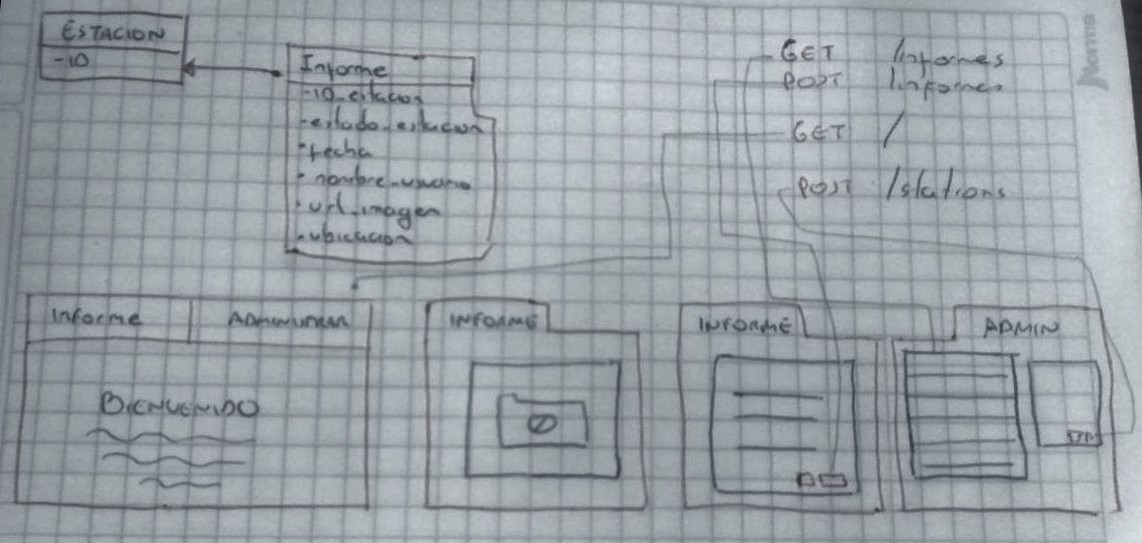 ESTACION
-ID
Informe
-ID_estacion
-estado_estacion
-fecha
-nombre_usuario
-url_imagen
-ubicacion
GET /informes
POST /informes
GET /
POST /stations
Informe
ADMINISTRAR
BIENVENIDO
INFORME
INFORME
ADMIN
Norma